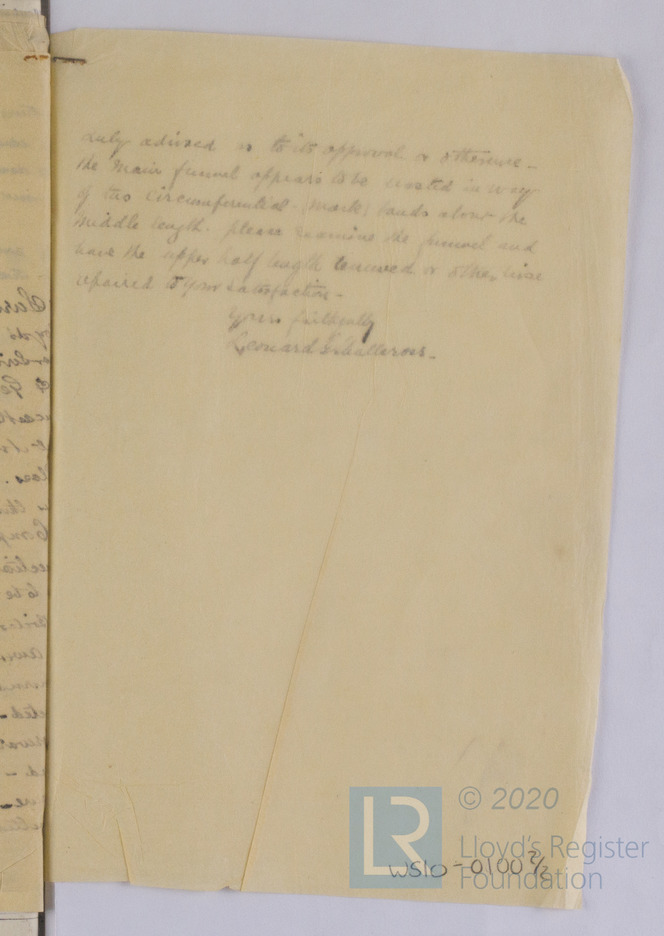 duly advised as to its approval or otherwise –
the main funnel appears to be wasted in way
of two circumferential (mark) bands about the
middle length. please examine the funnel and
have the upper half length renewed or otherwise
repaired to your satisfaction –
Yours faithfully
Leonard
LR
© 2020
Lloyd's Register
Foundation
WS10-0100 2/2